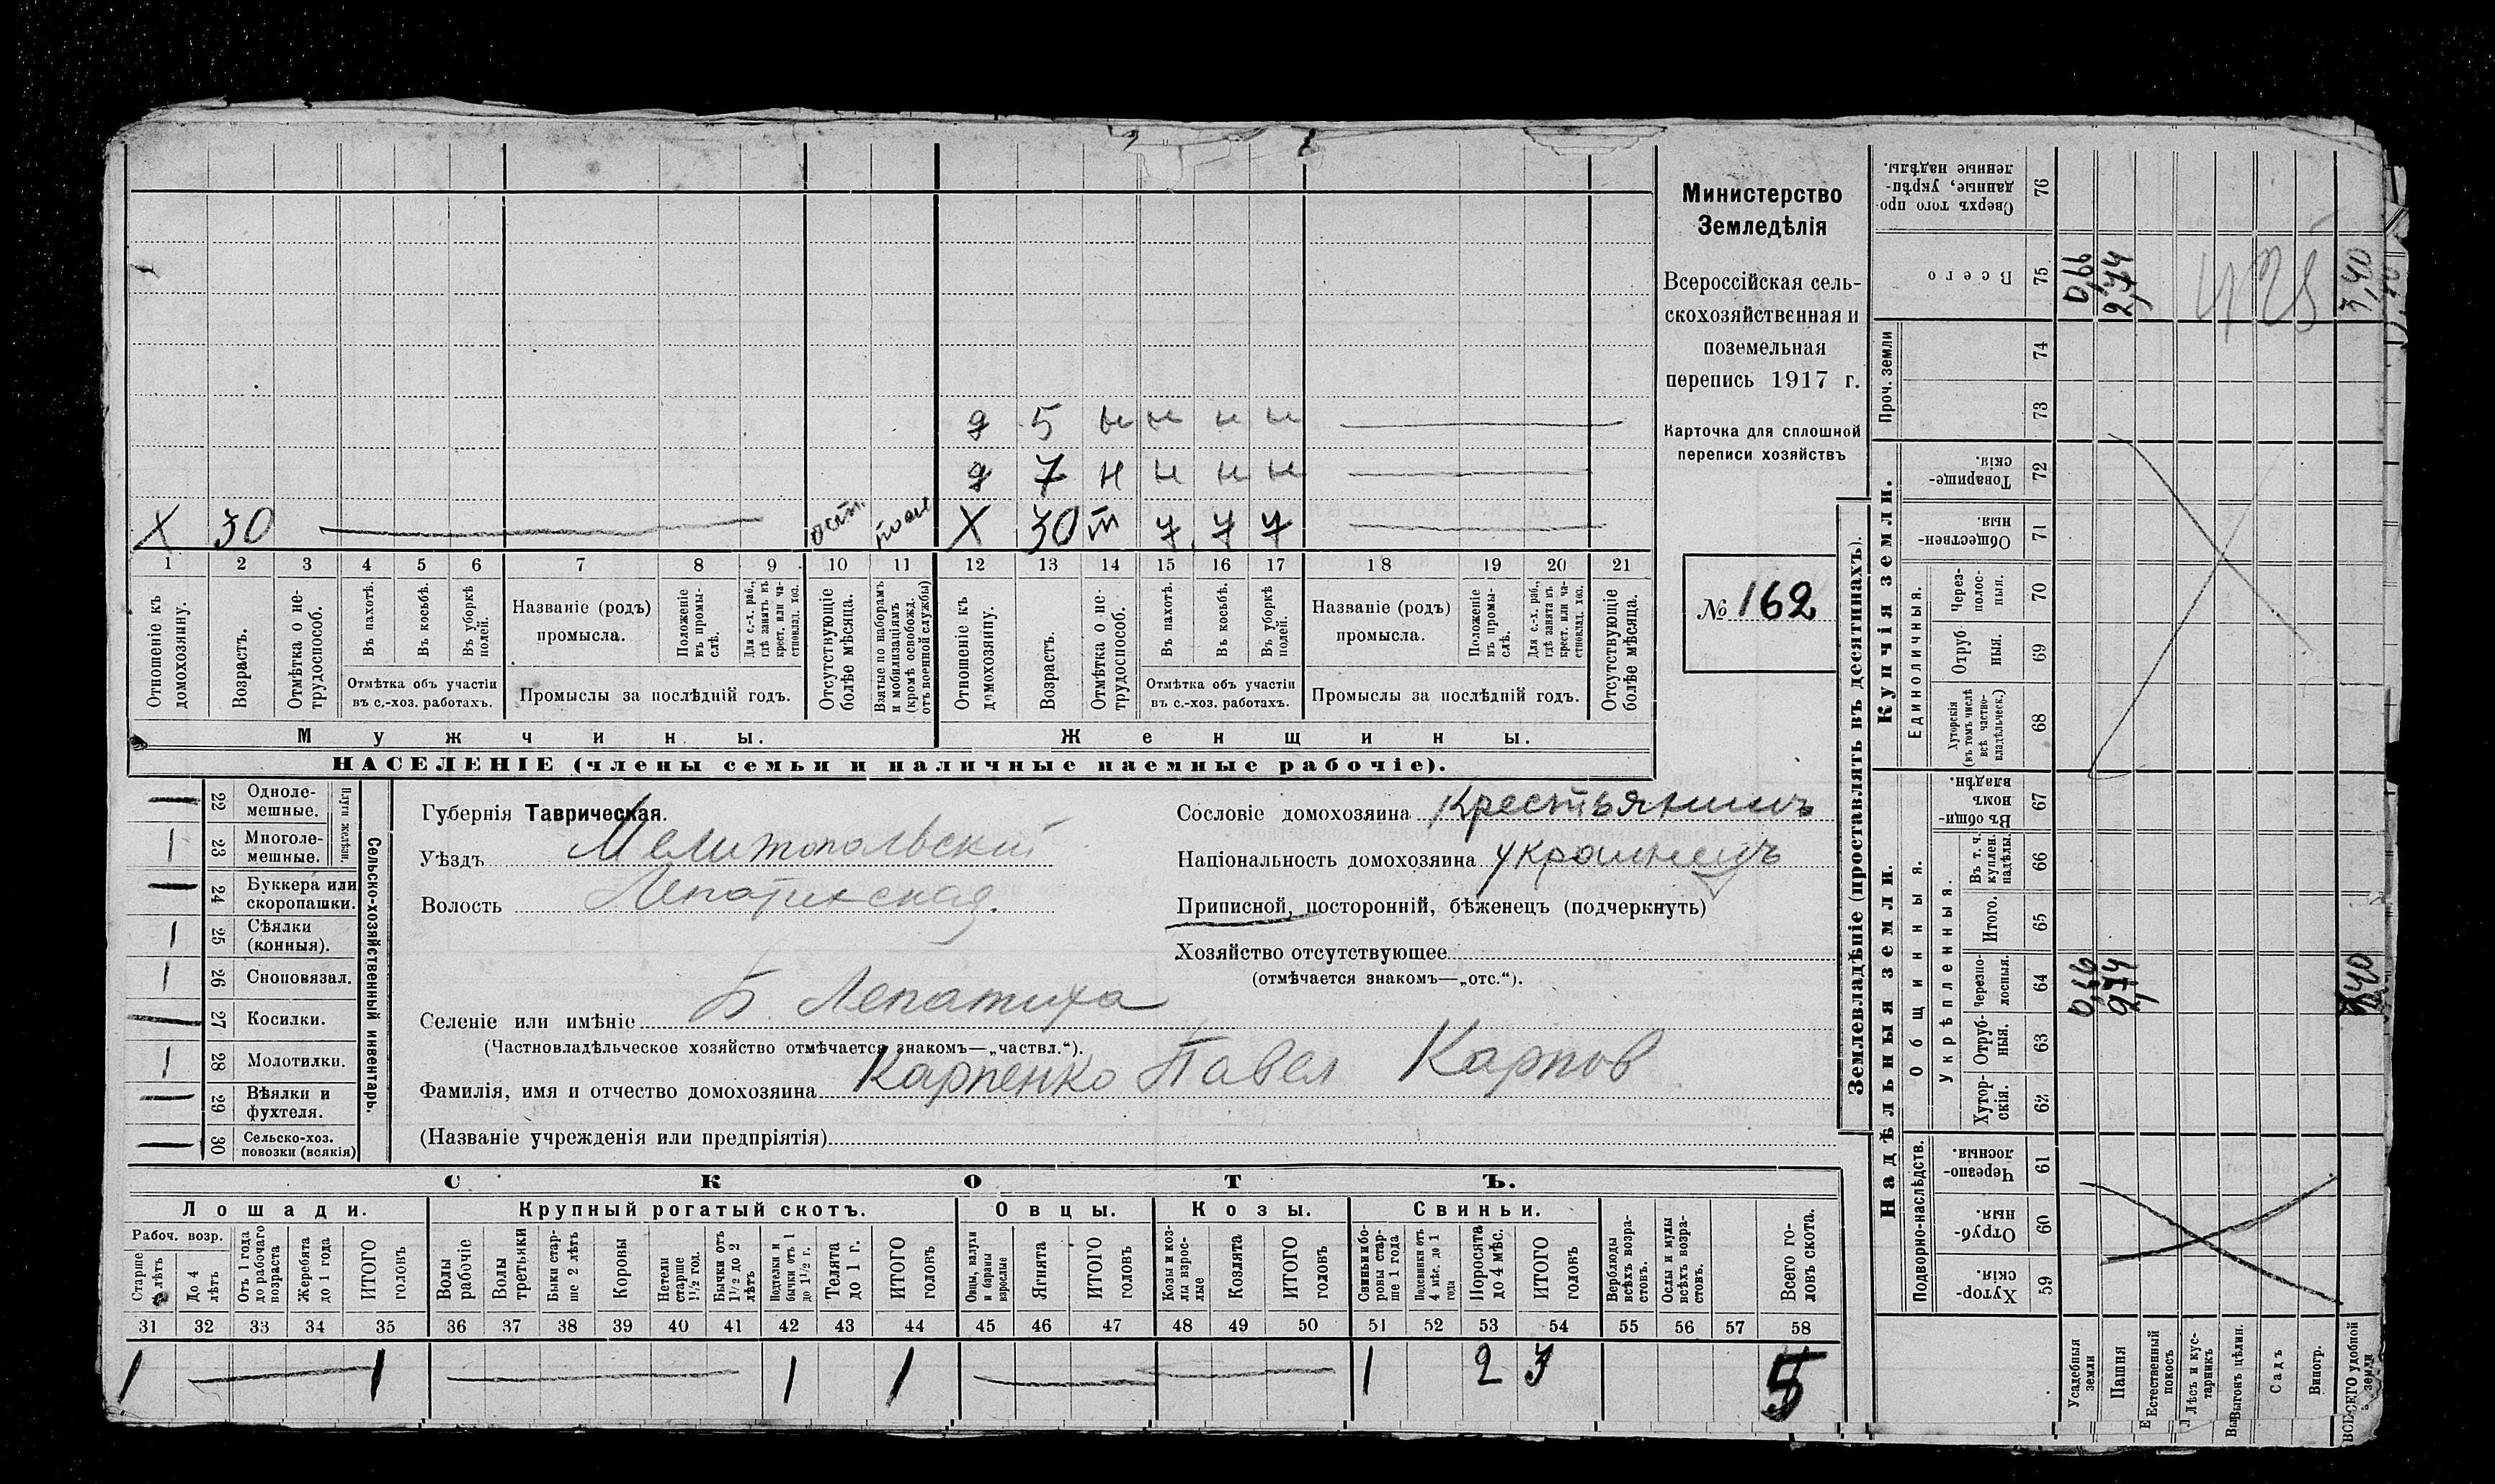 д 5 н н н н
д 7 н н н н
Х 30 Х 30 т
1 2 3 4 5 6 7 8 9 10 11 12 13 14 15 16 17 18 19 20 21
Отношеніе къ домохозяину.
Возрастъ.
Отмѣтка о не-трудоспособ.
Въ пахотѣ.
Въ косьбѣ.
Въ уборкѣ полей.
Отмѣтка объ участіи
въ с.-хоз. работахъ.
Названіе (родъ)
промысла.
Положеніе въ промы-слѣ.
Для с.-х. раб., гдѣ занятъ въ крест. или ча-стновлад. хоз.
Промыслы за послѣдній годъ.
Отсутствующіе болѣе мѣсяца.
Взятые по наборамъ и мобилизаціямъ (кромѣ освобожд. отъ военной службы)
Отношеніе къ домохозяину.
Возрастъ.
Отмѣтка о не-трудоспособ.
Въ пахотѣ.
Въ косьбѣ.
Въ уборкѣ полей.
Отмѣтка объ участіи
въ с.-хоз. работахъ.
Названіе (родъ)
промысла.
Положеніе въ промы-слѣ.
Для с.-х. раб., гдѣ занята въ крест. или ча-стновлад. хоз.
Промыслы за послѣдній годъ.
Отсутствующіе болѣе мѣсяца.
Мужчины.
Женщины.
НАСЕЛЕНІЕ (члены семьи и наличные наемные рабочіе).
Министерство
Земледѣлія
Всероссійская сель-
скохозяйственная и
поземельная
перепись 1917 г.
Карточка для сплошной
переписи хозяйствъ
№ 162
Сельско-хозяйственный инвентарь.
Плуги желѣзн.
22 Одноле-мешные.
1 23 Многоле-мешные.
24 Буккера или скоропашки.
1 25 Сѣялки (конныя).
1 26 Сноповязал.
27 Косилки.
1 28 Молотилки.
29 Вѣялки и фухтеля.
30 Сельско-хоз. повозки (всякія)
Губернія Таврическая.
Уѣздъ Мелитопольскій
Волость
Селеніе или имѣніе Б. Лепатиха
(Частновладѣльческое хозяйство отмѣчается знакомъ—„частвл.“).
Фамилія, имя и отчество домохозяина Карпенко Павел Карпов
(Названіе учрежденія или предпріятія)
Сословіе домохозяина Крестьянинъ
Національность домохозяина украинецъ
Приписной, посторонній, бѣженецъ (подчеркнуть)
Хозяйство отсутствующее
(отмѣчается знакомъ—„отс.“).
СКОТЪ.
Лошади.
Крупный рогатый скотъ.
Овцы.
Козы.
Свиньи.
Рабоч. возр.
Старше лѣтъ
До 4 лѣтъ
Отъ 1 года до рабочаго возраста
Жеребята до 1 года
ИТОГО головъ
Волы рабочіе
Волы третьяки
Быки стар-ше 2 лѣтъ
Коровы
Нетели старше 1½ год.
Бычки отъ 1½ до 2 лѣтъ
Подтелки и бычки отъ 1 до 1½ г.
Телята до 1 г.
ИТОГО головъ
Овцы, валухи и бараны взрослые
Ягнята
ИТОГО головъ
Козы и коз-лы взрос-лые
Козлята
ИТОГО головъ
Свиньи и бо-ровы стар-ше 1 года
Подсвинки отъ 4 мѣс. до 1 года
Поросята до 4 мѣс.
ИТОГО головъ
Верблюды всѣхъ возра-стовъ.
Ослы и мулы всѣхъ возра-стовъ.
Всего го-ловъ скота.
31 32 33 34 35 36 37 38 39 40 41 42 43 44 45 46 47 48 49 50 51 52 53 54 55 56 57 58
1 1 1 1 1 2 3 5
Землевладѣніе (проставлять въ десятинахъ).
Надѣльныя земли.
Купчія земли.
Проч. земли
Подворно-наслѣдств.
Общинныя.
Укрѣпленныя.
Единоличныя.
Сверхъ того про-данные, укрѣп-ленные надѣлы.
76
Всего
75 0,66 2,74 3,40
74
73
Товарище-скія.
72
Обществен-ныя.
71
Через-полос-ныя.
70
Отруб-ныя.
69
Хуторскія (въ томъ числѣ всѣ частно-владѣльческ.)
68
Въ общи-номъ владѣн.
67
Въ т. ч. куплен. надѣлы.
66
Итого.
65
Черезпо-лосныя.
64 0,66 2,74
Отруб-ныя.
63
Хутор-скія.
62
Черезпо-лосныя.
61
Отруб-ныя.
60
Хутор-скія.
59
Усадебныя земли
Пашня
Естественный покосъ
Лѣсъ и кус-тарникъ
Выгонъ цѣлин.
Садъ
Виногр.
ВСЕГО удобной земли